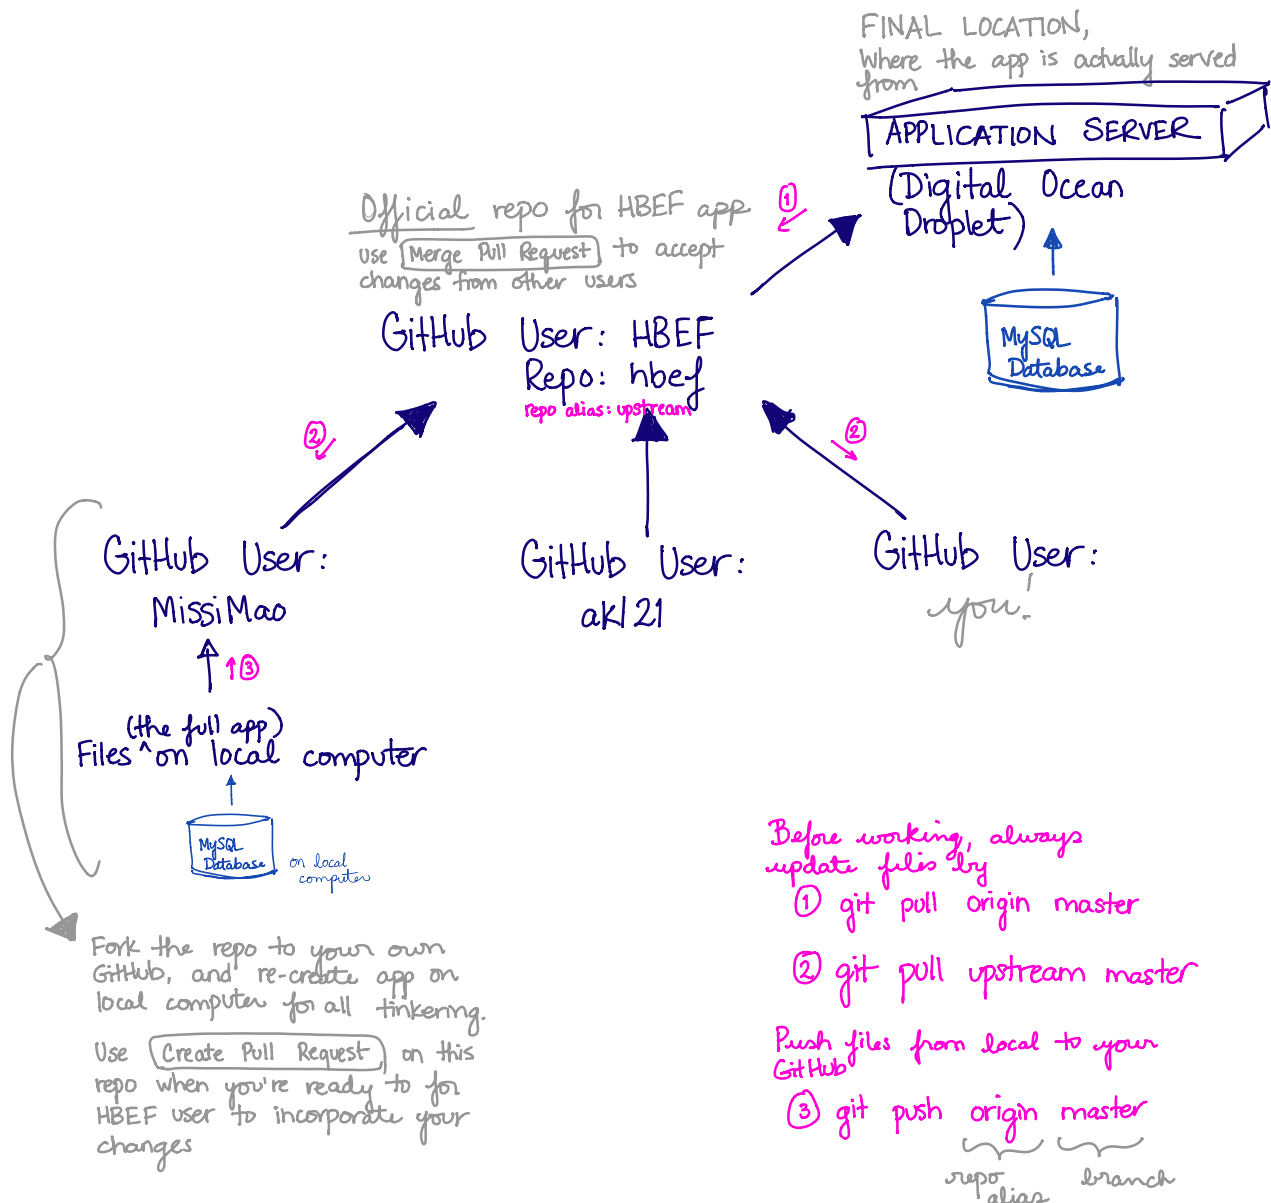 FINAL LOCATION,
Where the app is actually served
from
APPLICATION SERVER
(Digital Ocean
Droplet)
MySQL
Database
①
Official repo for HBEF app
use Merge Pull Request to accept
changes from other users
GitHub User: HBEF
Repo: hbef
repo alias: upstream
②
②
GitHub User:
MissiMao
GitHub User:
akl21
GitHub User:
you!
③
(the full app)
Files ^ on local computer
MySQL
Database
on local
computer
Fork the repo to your own
GitHub, and re-create app on
local computer for all tinkering.
Use Create Pull Request on this
repo when you're ready to for
HBEF user to incorporate your
changes
Before working, always
update files by
① git pull origin master
② git pull upstream master
Push files from local to your
GitHub
③ git push origin master
repo
alias
branch